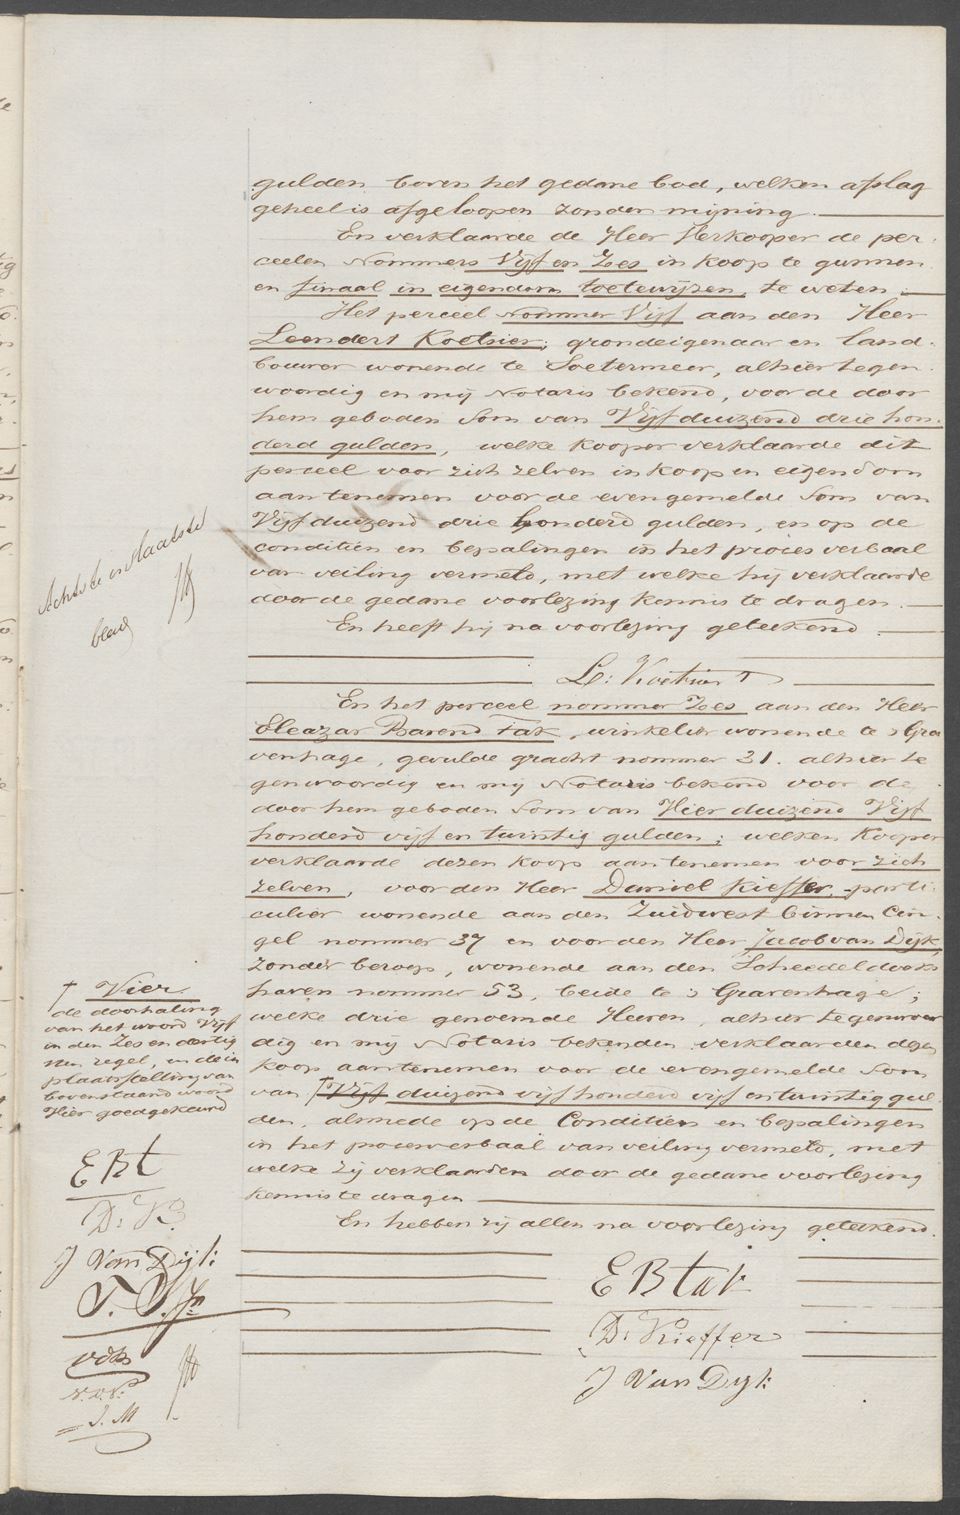 gulden boven het gedane bod, welken afslag
geheel is afgeloopen zonder mijning.
En verklaarde de Heer Verkooper de per-
ceelen Nommers Vijf en Zes in koop te gunnen
en finaal in eigendom toetewijzen, te weten:
Het perceel Nommer Vijf aan den Heer
Leendert Koetsier, grondeigenaar en land-
bouwer wonende te Soetermeer, alhier tegen-
woordig en mij Notaris bekend, voor de door
hem geboden Som van Vijfduizend drie hon-
derd gulden, welke Kooper verklaarde dit
perceel voor zich zelven in koop en eigendom
aantenemen voor de evengemelde Som van
Vijfduizend drie honderd gulden, en op de
conditiën en bepalingen in het proces verbaal
van veiling vermeld, met welke hij verklaarde
door de gedane voorlezing kennis te dragen.
En heeft hij na voorlezing geteekend.
L: Koetsier
En het perceel nommer Zes aan den Heer
Eleazar Barend Tak, winkelier wonende te 's Gra
venhage, gevulde gracht nommer 31. alhier te
genwoordig en mij Notaris bekend voor de
door hem geboden Som van Vier duizend Vijf
honderd vijf en twintig gulden; welken Kooper
verklaarde dezen koop aantenemen voor zich
zelven, voor den Heer Daniel Kieffer, parti-
culier wonende aan den Zuidwest binnen Cin-
gel nommer 37 en voor den Heer Jacob van Dijk,
zonder beroep, wonende aan den Scheedeldoeks
haven nommer 53, beide te 's Gravenhage;
welke drie genoemde Heeren, alhier tegenwoor
dig en mij Notaris bekenden verklaarden dezen
koop aantenemen voor de evengemelde Som
van † Vijf duizend vijf honderd vijf en twintig gul-
den, almede op de Conditiën en bepalingen
in het procesverbaal van veiling vermeld, met
welke zij verklaarden door de gedane voorlezing
kennis te dragen
En hebben zij allen na voorlezing geteekend.
E B Tak
D. Kieffer
J Van Dijk
Achtste en laatste
blad
† Vier
de doorhaling
van het woord Vijf
in den Zes en dertig
sten regel, en de in
plaatsstelling van
bovenstaand woord
Vier goedgekeurd
E B t
D. K
J Van Dijk
vdB
J. M